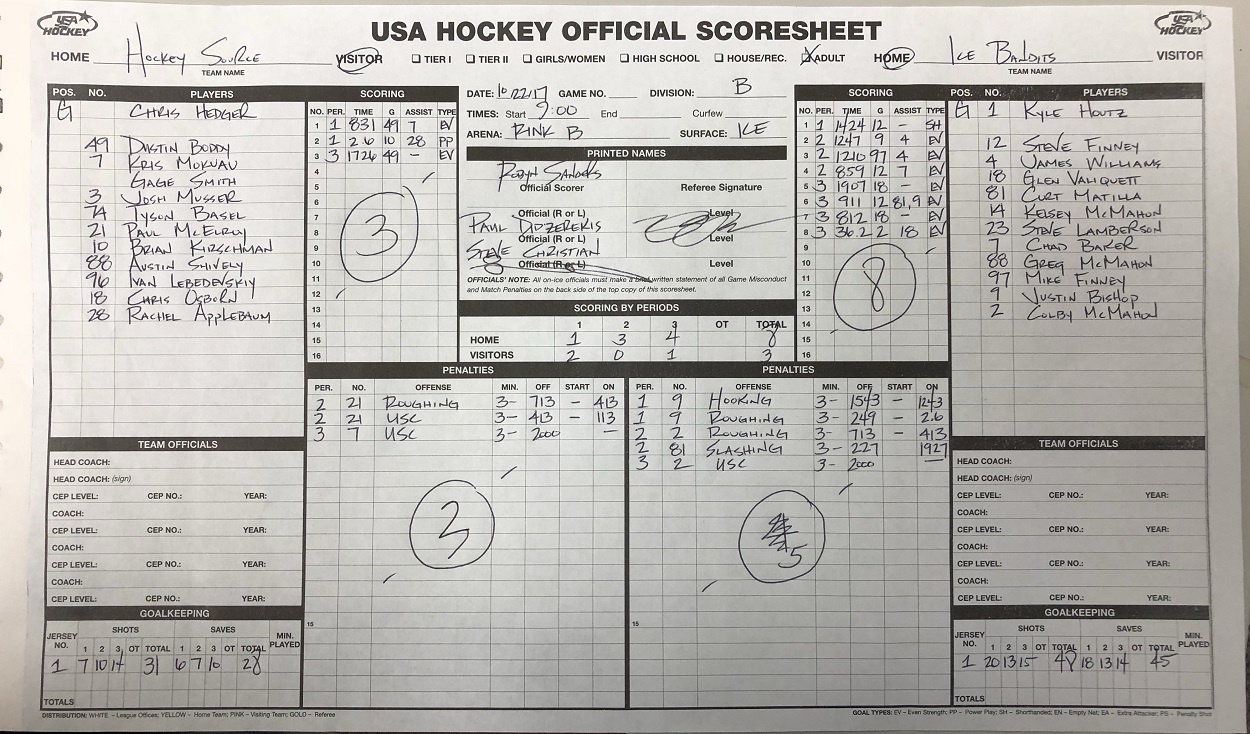 USA HOCKEY OFFICIAL SCORESHEET
USA HOCKEY
USA HOCKEY
HOME Hockey Source VISITOR
TEAM NAME
☐ TIER I ☐ TIER II ☐ GIRLS/WOMEN ☐ HIGH SCHOOL ☐ HOUSE/REC. ☒ ADULT
HOME Ice Bandits VISITOR
TEAM NAME
POS. NO. PLAYERS
G CHRIS HEDGER
49 DUSTIN BODDY
7 KRIS MOKNAU
GAGE SMITH
3 JOSH MUSSER
74 TYSON BASEL
21 PAUL McELROY
10 BRIAN KIRSCHMAN
88 AUSTIN SHIVELY
96 IVAN LEBEDEVSKIY
18 CHRIS OSBORN
28 RACHEL APPLEBAUM
SCORING
NO. PER. TIME G ASSIST TYPE
1 1 831 49 7 EV
2 1 2.6 10 28 PP
3 3 1726 49 - EV
4
5
6
7
8
9
10
11
12
13
14
15
16
3
DATE: 10/22/17 GAME NO. DIVISION: B
TIMES: Start 9:00 End Curfew
ARENA: RINK B SURFACE: ICE
PRINTED NAMES
Robyn Sanders
Official Scorer Referee Signature
Official (R or L) Level
PAUL DIDZEREKIS
Official (R or L) Level
STEVE CHRISTIAN
Official (R or L) Level
OFFICIALS' NOTE: All on-ice officials must make a brief written statement of all Game Misconduct
and Match Penalties on the back side of the top copy of this scoresheet.
SCORING BY PERIODS
1 2 3 OT TOTAL
HOME 1 3 4 8
VISITORS 2 0 1 3
SCORING
NO. PER. TIME G ASSIST TYPE
1 1 1424 12 - SH
2 2 1247 9 4 EV
3 2 1210 97 4 EV
4 2 859 12 7 EV
5 3 1907 18 - EV
6 3 911 12 81,9 EV
7 3 812 18 - EV
8 3 36.2 2 18 EV
9
10
11
12
13
14
15
16
8
POS. NO. PLAYERS
G 1 KYLE HOUTZ
12 STEVE FINNEY
4 JAMES WILLIAMS
18 GLEN VALIQUETT
81 CURT MATILLA
14 KELSEY McMAHON
23 STEVE LAMBERSON
7 CHAD BAKER
88 GREG McMAHON
97 MIKE FINNEY
9 JUSTIN BISHOP
2 COLBY McMAHON
PENALTIES
PER. NO. OFFENSE MIN. OFF START ON
2 21 ROUGHING 3- 713 - 413
2 21 USC 3- 413 - 113
3 7 USC 3- 2000 —
15
3
PENALTIES
PER. NO. OFFENSE MIN. OFF START ON
1 9 HOOKING 3- 1543 - 1243
1 9 ROUGHING 3- 249 - 2.6
2 2 ROUGHING 3- 713 - 413
2 81 SLASHING 3- 227 1927
3 2 USC 3- 2000 —
15
5
TEAM OFFICIALS
HEAD COACH:
HEAD COACH: (sign)
CEP LEVEL: CEP NO.: YEAR:
COACH:
CEP LEVEL: CEP NO.: YEAR:
COACH:
CEP LEVEL: CEP NO.: YEAR:
COACH:
CEP LEVEL: CEP NO.: YEAR:
GOALKEEPING
JERSEY NO. SHOTS SAVES MIN. PLAYED
1 2 3 OT TOTAL 1 2 3 OT TOTAL
1 7 10 14 31 6 7 10 28
TOTALS
TEAM OFFICIALS
HEAD COACH:
HEAD COACH: (sign)
CEP LEVEL: CEP NO.: YEAR:
COACH:
CEP LEVEL: CEP NO.: YEAR:
COACH:
CEP LEVEL: CEP NO.: YEAR:
COACH:
CEP LEVEL: CEP NO.: YEAR:
GOALKEEPING
JERSEY NO. SHOTS SAVES MIN. PLAYED
1 2 3 OT TOTAL 1 2 3 OT TOTAL
1 20 13 15 48 18 13 14 45
TOTALS
DISTRIBUTION: WHITE – League Offices; YELLOW – Home Team; PINK – Visiting Team; GOLD – Referee
GOAL TYPES: EV – Even Strength; PP – Power Play; SH – Shorthanded; EN – Empty Net; EA – Extra Attacker; PS – Penalty Shot